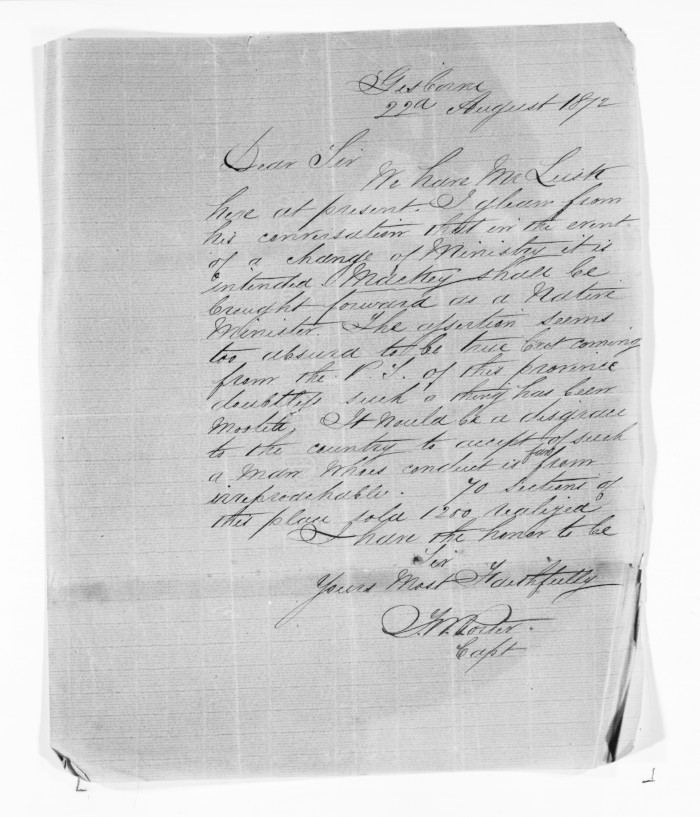 Gisborne
22d August 1872
Dear Sir
We have Mr Lusk
here at present. I glean from
his conversation that in the event
of a change of Ministry it is
intended Mackey shall be
brought forward as a Native
Minister. The assertion seems
too absurd to be true but coming
from the P.S. of this province
doubtless such a thing has been
mooted, It would be a disgrace
to the country to accept of such
a man whos conduct is far from
irreproachable. 70 Sections of
this place sold 1200 realized
I have the honor to be
Sir
Yours Most Faithfully
Porter.
Capt